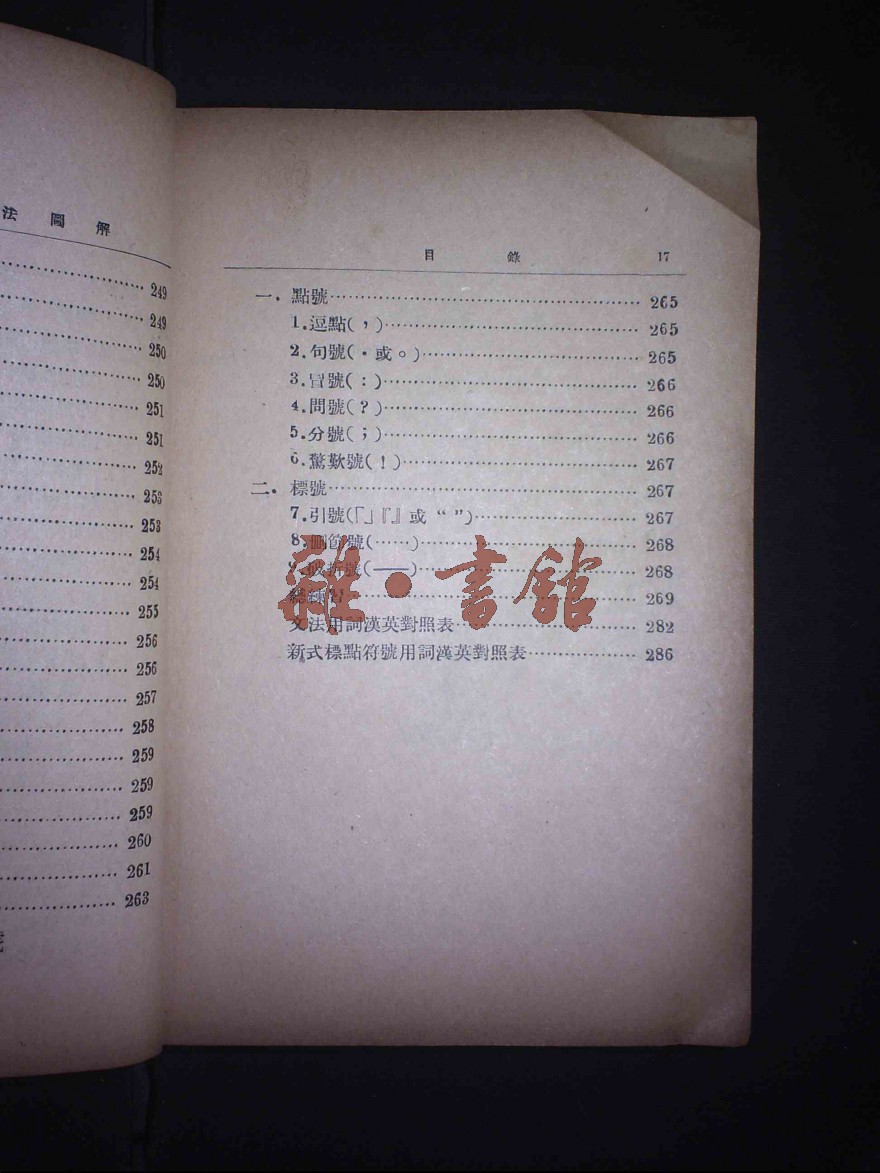 法 圖 解
249
249
250
250
251
251
252
253
253
254
254
255
256
256
257
258
259
259
259
260
261
263
目 錄 17
一．點號 265
1.逗點(，) 265
2.句號(．或。) 265
3.冒號(：) 266
4.問號(？) 266
5.分號(；) 266
6.驚歎號(！) 267
二．標號 267
7.引號(「」『』或“ ”) 267
8.刪節號(……) 268
9.破折號(——) 268
總練習 269
文法用詞漢英對照表 282
新式標點符號用詞漢英對照表 286
雜·書館